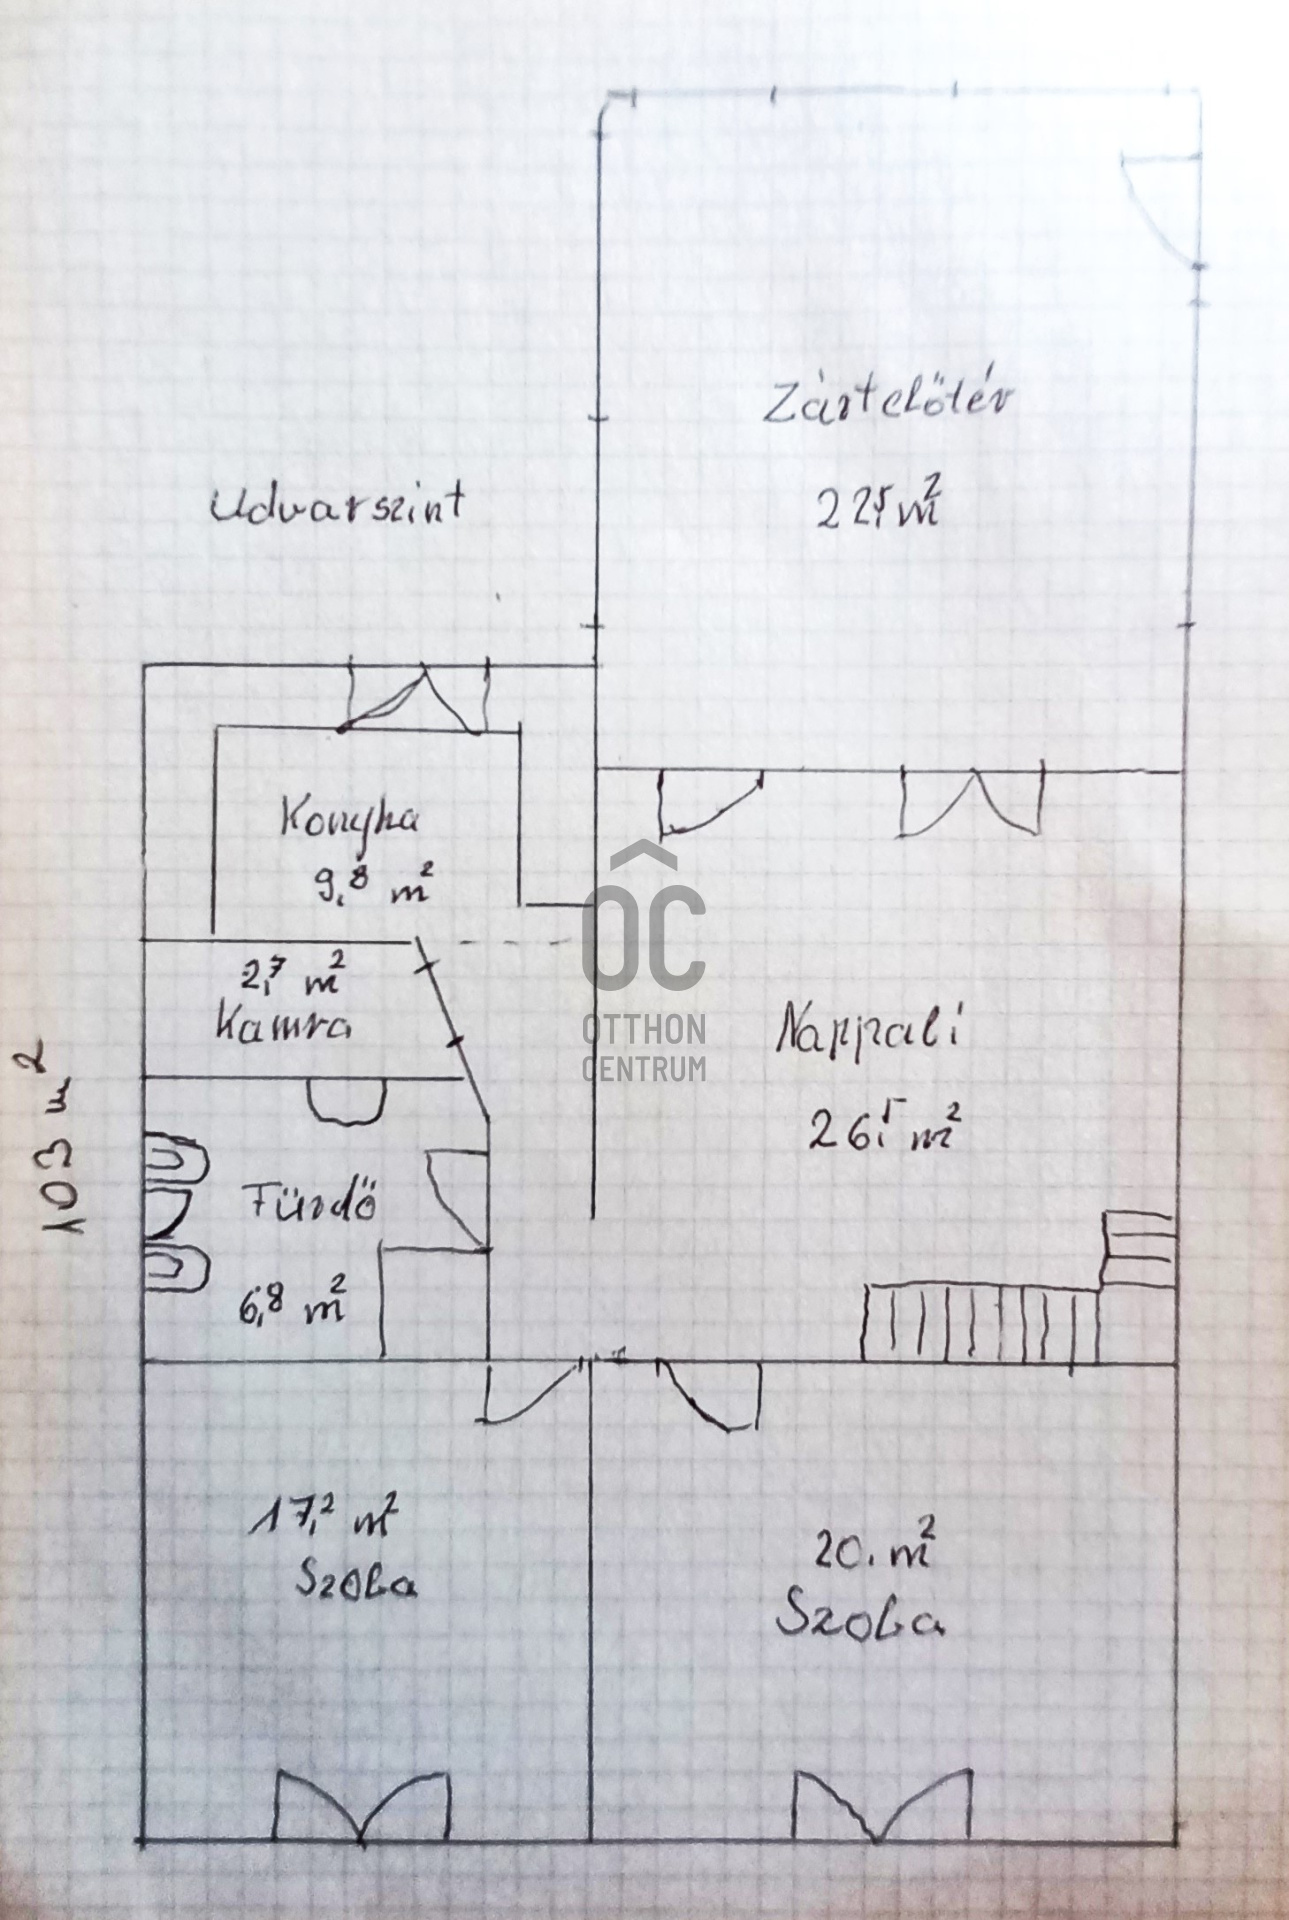 Zártelőtér
22,5 m²
Udvarszint
Konyha
9,8 m²
2,7 m²
Kamra
OC
OTTHON
CENTRUM
Nappali
26,5 m²
103 m²
Fürdő
6,8 m²
17,2 m²
Szoba
20. m²
Szoba